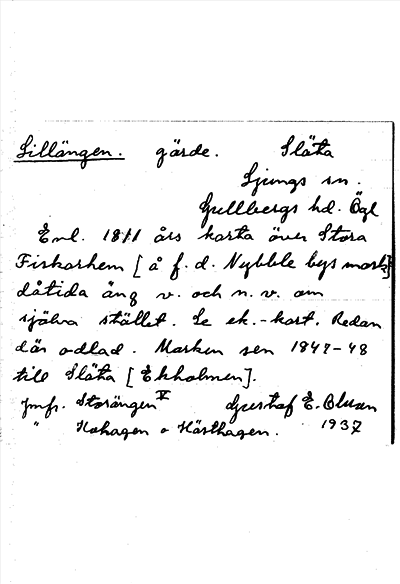 Lillängen. gärde. Släta
Ljungs sn.
Gullbergs hd. Ögl
Enl. 1811 års karta över Stora
Fiskarhem [å f. d. Nybble bys mark]
dåtida äng v. och n. v. om
själva stället. Se ek.-kart. Redan
där odlad. Marken sen 1847-48
till Släta [Ekholmen].
Jmfr. Storängen V Gustaf E. Olsson
" Kohagen o Hästhagen. 1937